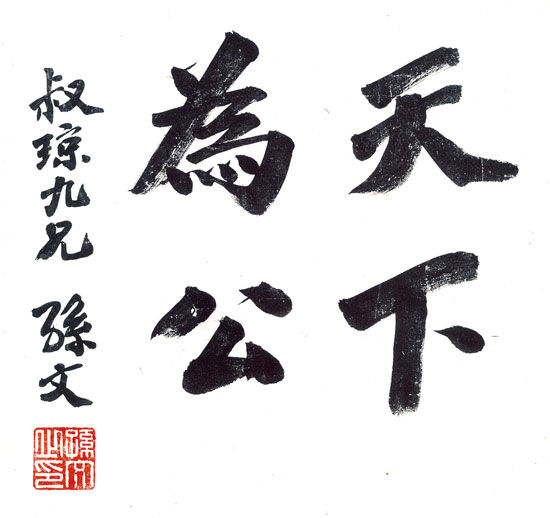 天下
為公
叔琼九兄 孫文
孫文之印